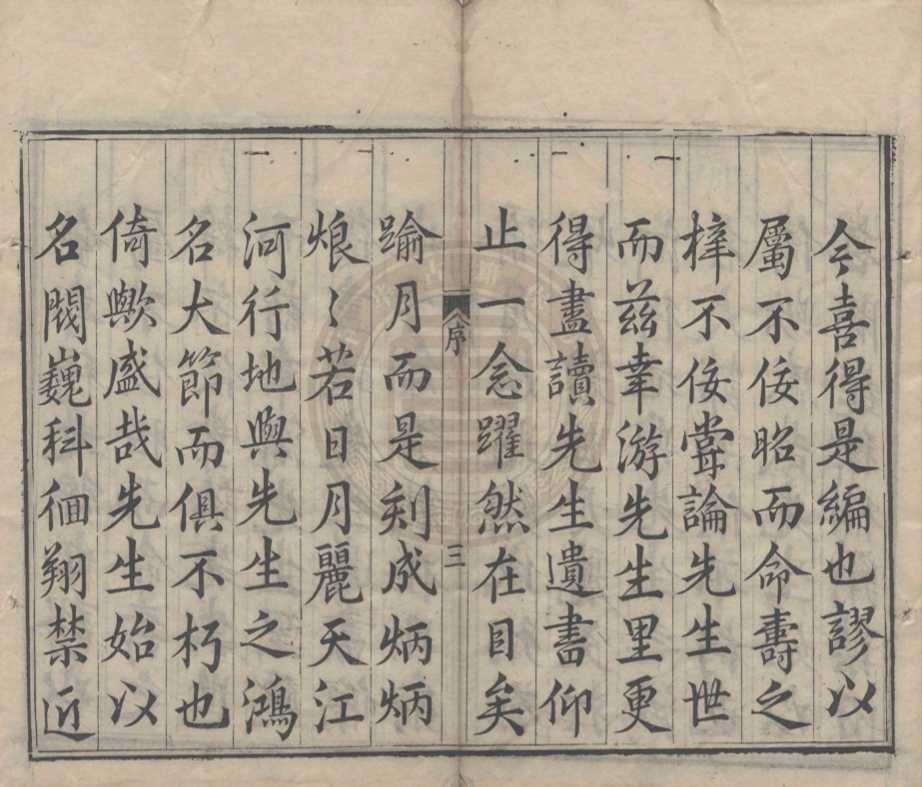 今喜得是編也謬以
屬不佞昭而命壽之
梓不佞甞論先生世
而茲幸游先生里更
得盡讀先生遺書仰
止一念躍然在目矣
序 三
踰月而是刻成炳炳
烺〻若日月麗天江
河行地與先生之鴻
名大節而俱不朽也
倚歟盛哉先生始以
名閥巍科徊翔禁近